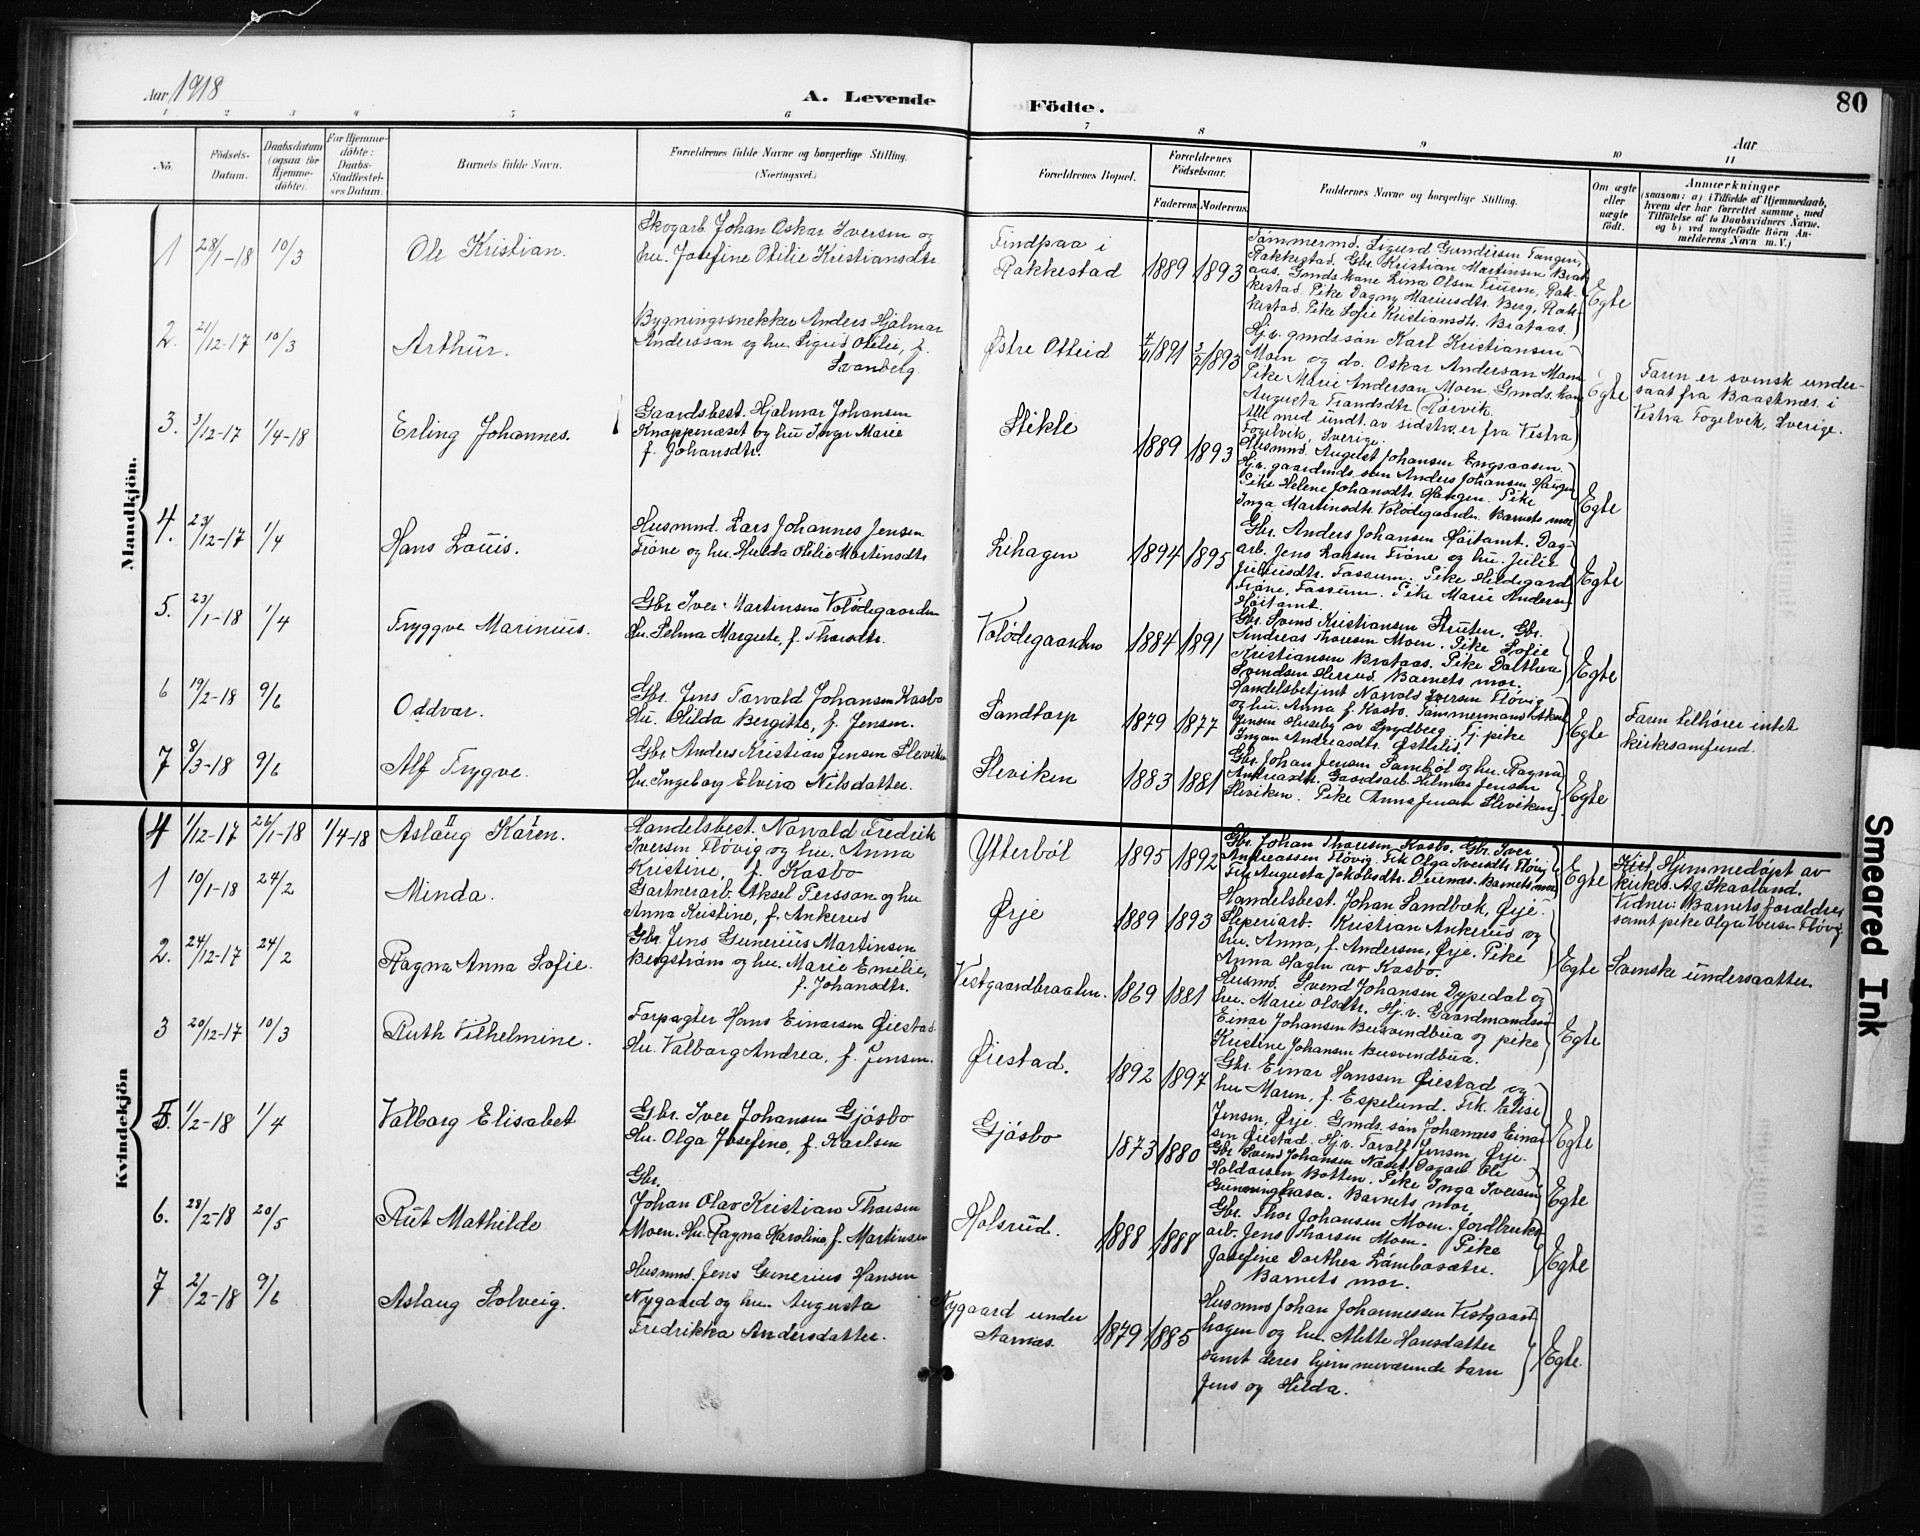 Aar 1918
A. Levende
Födte.
80
Aar
1 2 3 4 5 6 7 8 9 10 11
No.
Födsels-
Datum.
Daabsdatum
(ogsaa for
Hjemme-
döbte).
For Hjemme-
döbte:
Daabs-
Stadfæstel-
ses Datum.
Barnets fulde Navn.
Forældrenes fulde Navne og borgerlige Stilling.
(Næringsvei.)
Forældrenes Bopæl.
Forældrenes
Födselsaar.
Faderens Moderens
Faddernes Navne og borgerlige Stilling.
Om ægte
eller
uægte
födt.
Anmærkninger
(saasom: a) i Tilfælde af Hjemmedaab,
hvem der har forrettet samme, med
Tilföielse af to Daabsvidners Navne.
og b) ved uægtefödte Börn An-
melderens Navn m. V.)
Mandkjön.
1 28/1-18 10/3 Ole Kristian.
Skogarb. Johan Oskar Iversen og
hu. Josefine Otilie Kristiansdtr
Findpaa i
Rakkestad
1889 1893
Tömmermd. Sigurd Gundersen Tangen,
Rakkestad. Gbr. Kristian Martinsen Brat
aas. Gmds.kone Lina Olsen Tuuren, Rak-
kestad. Pike Dagny Mariusdtr. Berg, Rak-
kestad. Pike Sofie Kristiansdtr. Brataas.
Egte
2. 21/12-17 10/3 Arthur.
Bygningssnekker Anders Hjalmar
Anderssan og hu. Sigrid Otilie, f.
Svanberg
Østre Otteid
1891 3/2 1893
Hj.v. gmdssön Karl Kristiansen
Moen og do. Oskar Andersan Moen
Pike Marie Andersan Moen. Gmds.kone
Augusta Frandsdtr. Rørvik.
Alle med undt. av sidstn. er fra Vestra
Fogelvik, Sverige.
Egte
Faren er svensk under-
saat fra Baastnæs i
Vestra Fogelvik, Sverige.
3. 3/12-17 1/4-18 Erling Johannes.
Gaardsbest. Hjalmar Johansen
Knappenæset og hu Inga Marie
f. Johansdtr.
Stikle
1889 1893
Husmnd. August Johansen Engsaasen.
Hj.v. gaardmds. søn Anders Johansen Haugen
Pike Helene Johansdtr. Haugen. Pike
Inga Martinsdtr. Volødegaarden. Barnets mor
Egte
4. 23/12-17 1/4 Hans Louis.
Husmnd. Lars Johannes Jensen
Trøne og hu. Hulda Otilie Martinsdtr
Lihagen
1894 1895
Gbr. Anders Johansen Høitomt. Dag-
arb. Jens Larsen Trøne og hu. Julie
Juliusdtr. Fossum. Pike Hildegard
Trøne, Fossum. Pike Marie Andersen
Høitomt.
Egte
5. 23/1-18 1/4 Tryggve Marinius.
Gbr Iver Martinsen Volødegaarden
Hu. Selma Margrete, f. Thorsdtr.
Volødegaarden
1884 1891
Gbr. Svend Kristiansen Struten. Gbr.
Andreas Thoresen Moen. Pike Sofie
Kristiansen Brataas. Pike Dorthea
Svendsen Herrud. Barnets mor.
Egte
6 19/2-18 9/6 Oddvar.
Gbr. Jens Torvald Johansen Kasbo
Hu. Hilda Bergitte, f. Jensen.
Sandtorp
1879 1877
Handelsbetjent Norvald Iversen Fløvig
og hu. Anna f. Kasbo. Tømmermand Aksel
Jensen Huseby av Spydberg. Tj. pike
Ingan Andreasdtr. Østlid.
Egte
Faren tilhører intet
kirkesamfund.
7 8/3-18 9/6 Alf Trygve.
Gbr Anders Kristian Jensen Sleviken
Hu. Ingeborg Elvira Nilsdatter.
Sleviken
1883 1881
Gbr. Johan Jensen Sambøl og hu. Ragna
Andreasdtr. Gaardsarb. Hilmar Jensen
Sleviken. Pike Anna Jensen Sleviken
Egte
Kvindekjön
4 1/12-17 26/1-18 1/4-18 Aslaug Karen.
II I
Handelsbest. Norvald Fredrik
Iversen Fløvig og hu. Anna
Kristine, f. Kasbo
Ytterbøl
1895 1892
Gbr. Johan Thoresen Kasbo. Gbr. Iver
Andreassen Fløvig. Frk Olga Iversdtr. Fløvig
Frk Augusta Jakobsdtr. Duenæs. Barnets mor
Egte
Hjemmedøpt av
kirkes. Ag. Skaaland.
Vidner: Barnets forældre
samt pike Olga Iversen Fløvig
1 10/1-18 24/2 Minda.
Gartnerarb. Aksel Persson og hu
Anna Kristine, f. Ankerud
Ørje
1889 1893
Handelsbest. Johan Sandbæk, Ørje.
Sliperiarb. Kristian Ankerud og
hu. Anna, f. Andersen, Ørje. Pike
Anna Hagen av Kasbo.
Egte
Svenske undersaatter.
2. 24/12-17 24/2 Ragna Anna Sofie.
Gbr. Jens Gunerius Martinsen
Bergstrøm og hu. Marie Emelie,
f. Johansdtr.
Vestgaardbraaten.
1869 1881
Husmd. Svend Johansen Dypedal og
hu. Marie Olsdtr. Hj.v. Gaardmandssøn
Einar Johansen Busvindbua og pike
Kristine Johansen Busvindbua.
Egte
3 20/12-17 10/3 Ruth Vilhelmine.
Forpagter Hans Einarsen Øiestad
Hu. Valborg Andrea, f. Jensen.
Øiestad.
1892 1897
Gbr. Einar Hanssen Øiestad og
hu. Maren, f. Espelund. Frk. Elise
Jensen, Ørje. Gmds. søn Johannes Einar
sen Øiestad. Hj.v. Toralf Jensen, Ørje.
Egte
5. 1/2-18 1/4 Valborg Elisabet
Gbr. Iver Johansen Gjösbo
Hu. Olga Josefine, f. Karlsen
Gjösbo
1873 1880
Gbr Svend Johansen Næset. Dagarb. Ole
Holdorsen Botten. Pike Inga Iversen
Barnets mor.
Egte
6. 28/2-18 20/5 Rut Mathilde
Gbr.
Johan Olav Kristian Thorsen
Moen. Hu. Ragna Karoline, f. Martinsen
Holsrud.
1888 1888
Gbr. Thor Johansen Moen. Jordbruks-
arb. Jens Thorsen Moen. Pike
Josefine Dorthea Lömbosætre.
Barnets mor.
Egte
7 2/2-18 9/6 Aslaug Solveig.
Husmnd. Jens Gunerius Hansen
Nygaard og hu. Augusta
Fredrikka Andersdatter.
Nygaard under
Aarnæs.
1879 1885
Husmnd Johan Johannessen Vestgaard
hagen og hu. Alette Hansdatter
samt deres hjemmeværende barn
Jens og Hilda.
Egte.
Smeared Ink